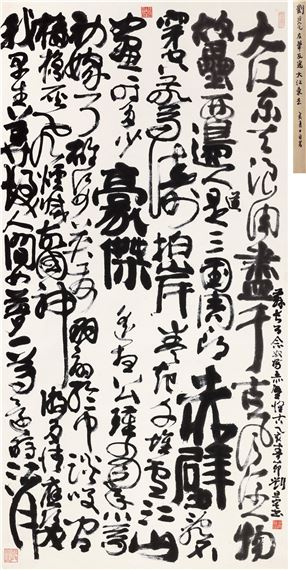 大江東去浪淘盡千古風流人物
故壘西邊人道是三國周郎赤壁亂石
穿空驚濤拍岸捲起千堆雪江山
如畫一時多少豪傑遙想公瑾當年小喬
初嫁了雄姿英發羽扇綸巾談笑間
檣櫓灰飛煙滅故國神遊多情應笑
我早生華髮人間如夢一尊還酹江月